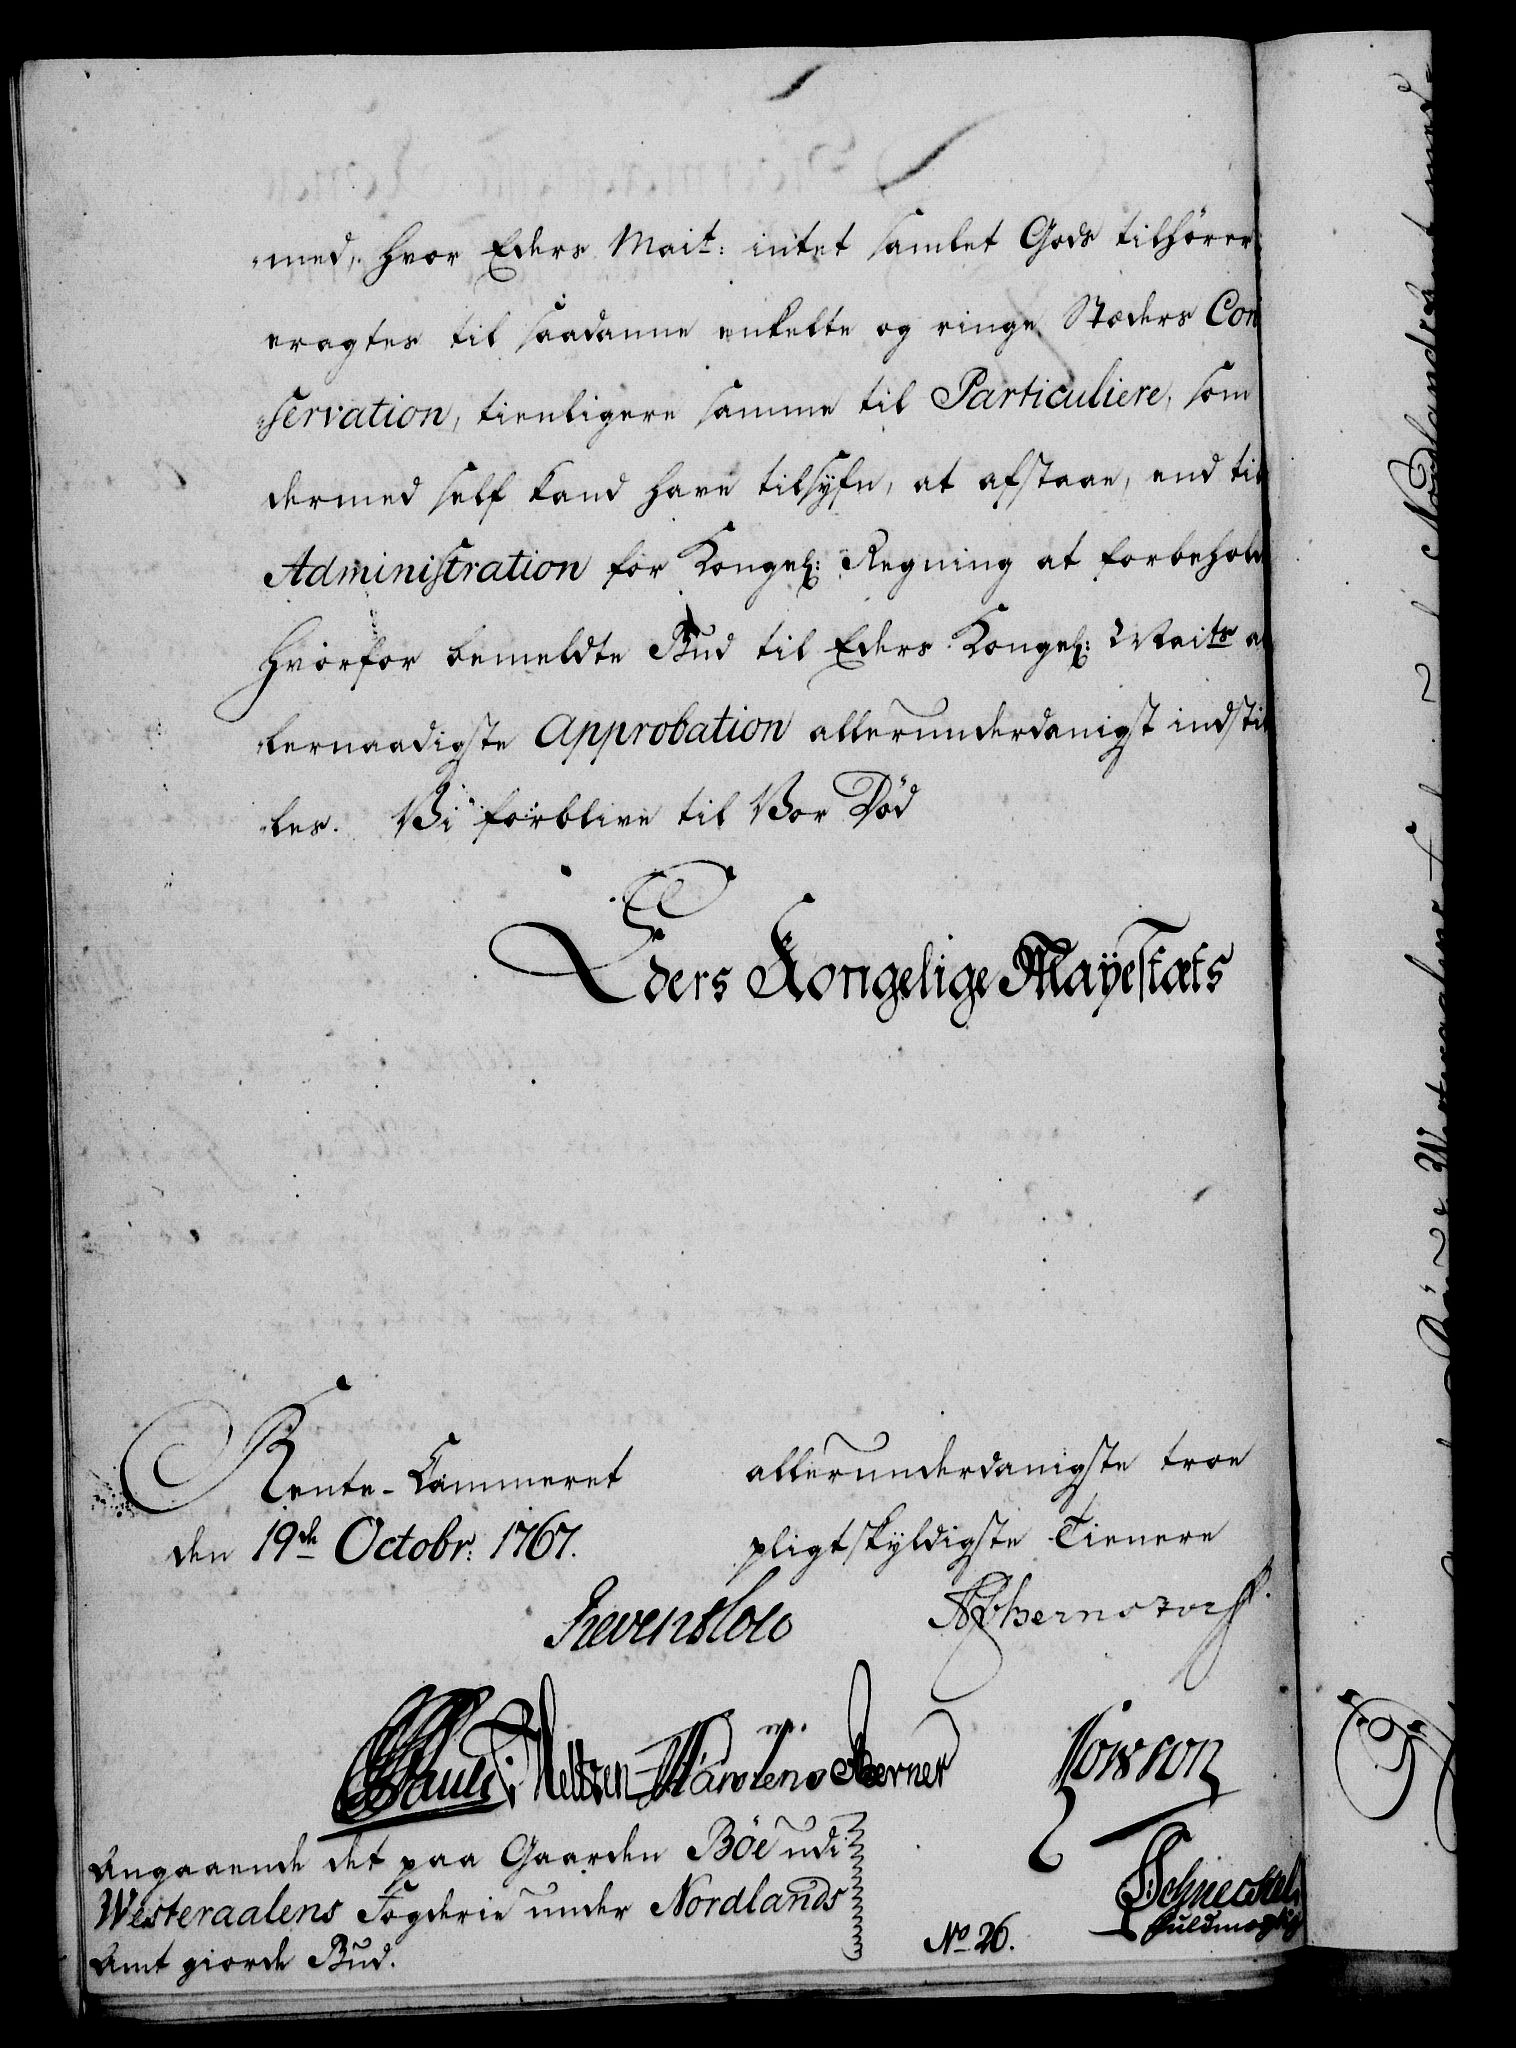 -med, hvor Eders Mait: intet samlet Gods tilhörer
eragtes til saadanne enkelte og ringe Stæders Con
-servation, tienligere samme til Particuliere, som
dermed self kand have tilsyfn, at afstaae, end til
Administration for Kongel: Regning at forbehold
hvorfor bemeldte Bud til Eders Kongel: Maits al
-lernaadigste Approbation allerunderdanigst indstil
-les. Vi forblive til Vor Död
Eders Kongelige Mayestæts
Rente-Cammeret
den 19de Octobr: 1767.
allerunderdanigste troe
pligtskyldigste Tienere
Reventlow
Bernstorff.
Pauli
Martens
Berner
Angaaende det paa Gaarden Böe udi
Westeraalens Fogderie under Nordlands
Amt giorde Bud.
No. 26.
fuldmægtig